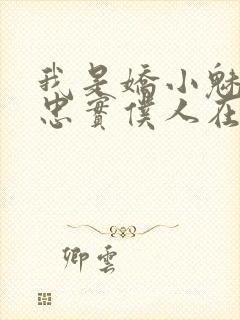 我是嬌小魅
忠實僕人在
卿雲